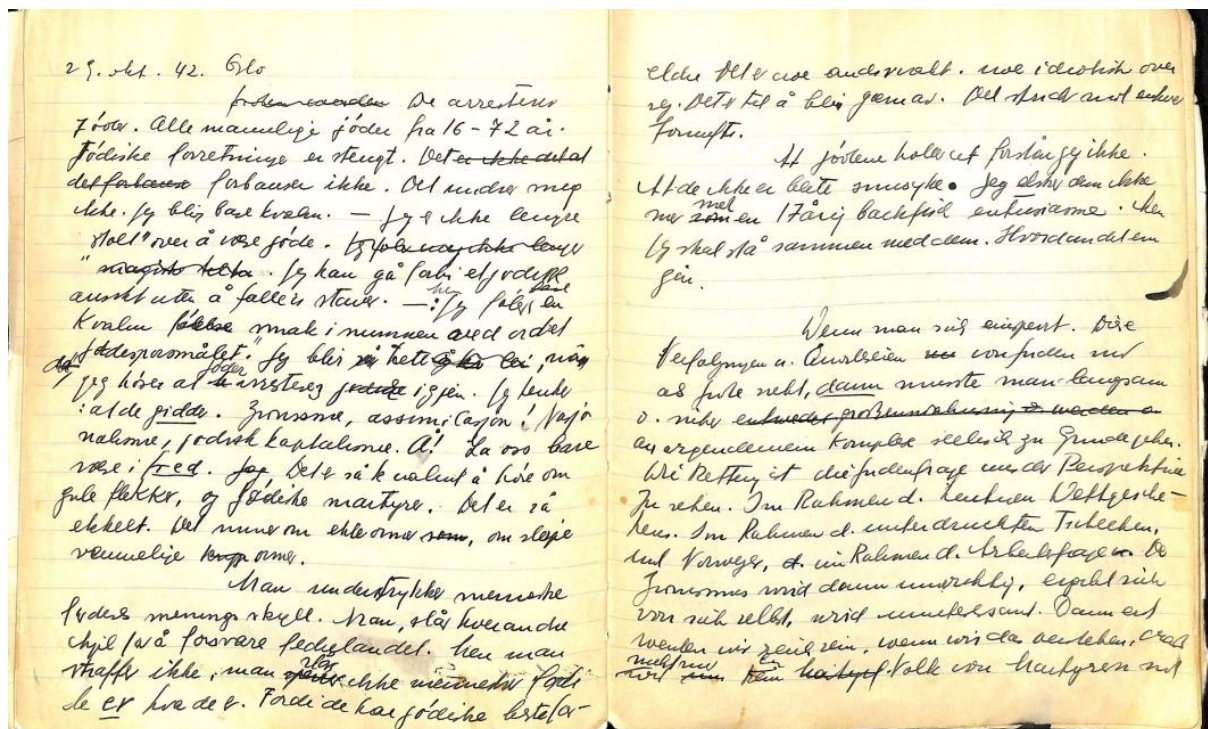 29. okt. 42. Oslo
De arresterer
Jöder. Alle mannlige jöder fra 16-72 år.
Jödiske forretninge er stengt. Det er ikke det at
det forbause forbauser ikke. Det undrer meg
ikke. Jeg blir bare kvalm. — Jeg er ikke lengre
"stolt" over å være jöde. Jeg föler meg ikke lenger
. Jeg kan gå forbi et jödisk
ansikt uten å falle i staver. — : Jeg föler en
kvalm fölelse smak i munnen ved ordet
"jödespörsmålet." Jeg blir trett, når
jeg hörer at jöder arresteres igjen. Jeg tenker
: at de gidder. Zionisme, assimilasjon! Nasjo
nalisme, jödisk kapitalisme. Å! La oss bare
være i fred. Det er så kvalmt å höre om
gule flekker, og jödiske martyrer. Det er så
ekkelt. Det minner om ekle ormer som, om sleipe
vemmelige ormer.
Man undertrykker menneske
for deres menings skyll. Man, slår hverandre
ihjel for å forsvare fedrelandet. Men man
straffer ikke, man slår ikke mennesker fordi
de er hva de er. Fordi de har jödiske bestefor-
eldre. Det er noe åndsvakt. noe idiotisk over
. Det er til å bli gæren av. Det strider mot enhver
fornuft.
At jödene holder ut forstår jeg ikke.
At de ikke er blitt sinnsyke. Jeg elsker dem ikke
mer med som en 17årig backfisch entusiasme. Men
jeg skal stå sammen med dem. Hvordan det enn
går.
Wenn man sich einsperrt. Diese
Verfolgungen u. Quälereien von Juden nur
als Jude sieht, dann müsste man langsam
u. sicher entweder grössenwahnsinnig werden o
an irgendeinem Komplex seelisch zu Grunde gehen.
Die Rettung ist die Judenfrage aus der Perspektive
zu sehen. Im Rahmen d. heutigen Weltgesche-
hens. Im Rahmen d. unterdrückten Tschechen,
und Norweger, d. im Rahmen d. Arbeiterfrage. Der
Zionismus wird dann unwichtig, ergibt sich
von sich selbst, wird uninteressant. Dann erst
werden wir reich sein, wenn wir das verstehen, dass
nicht nur ein Volk von Martyrern sind